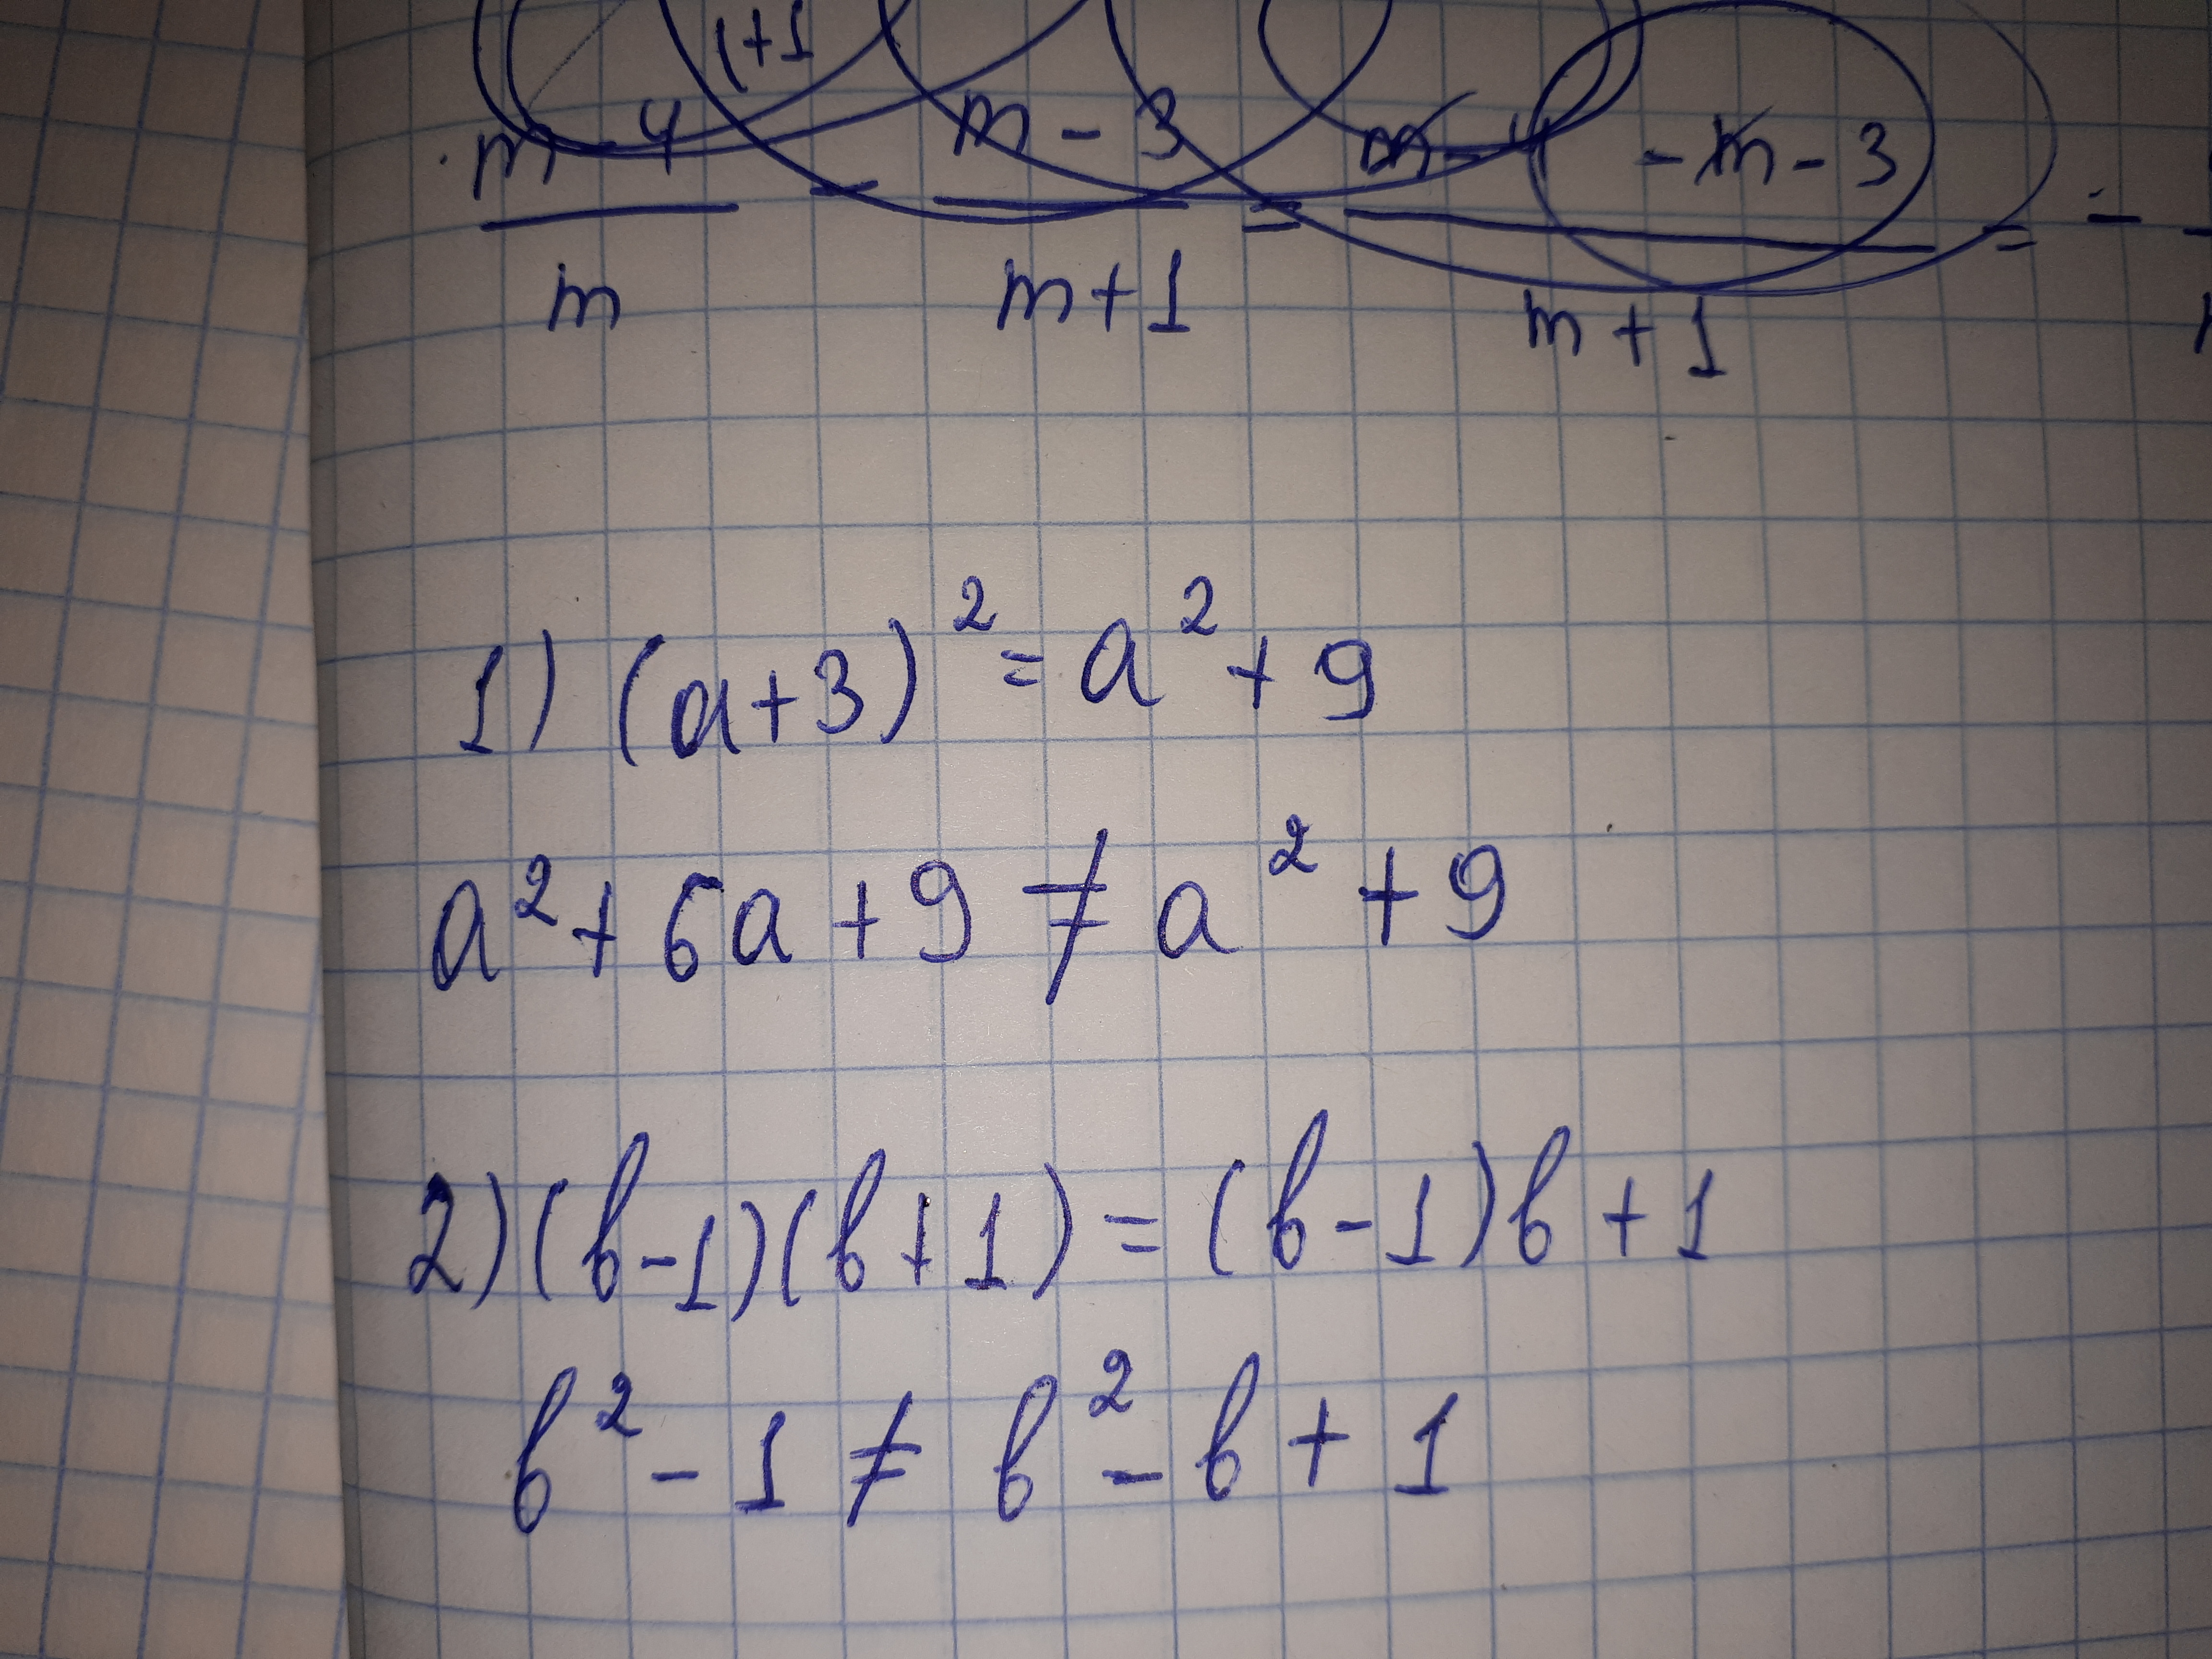 1+1
m-4 - m-3 = m-4 -m-3 = -
m m+1 m+1
1) (a+3)² = a² + 9
a² + 6a + 9 ≠ a² + 9
2) (b-1)(b+1) = (b-1)b+1
b² - 1 ≠ b² - b + 1